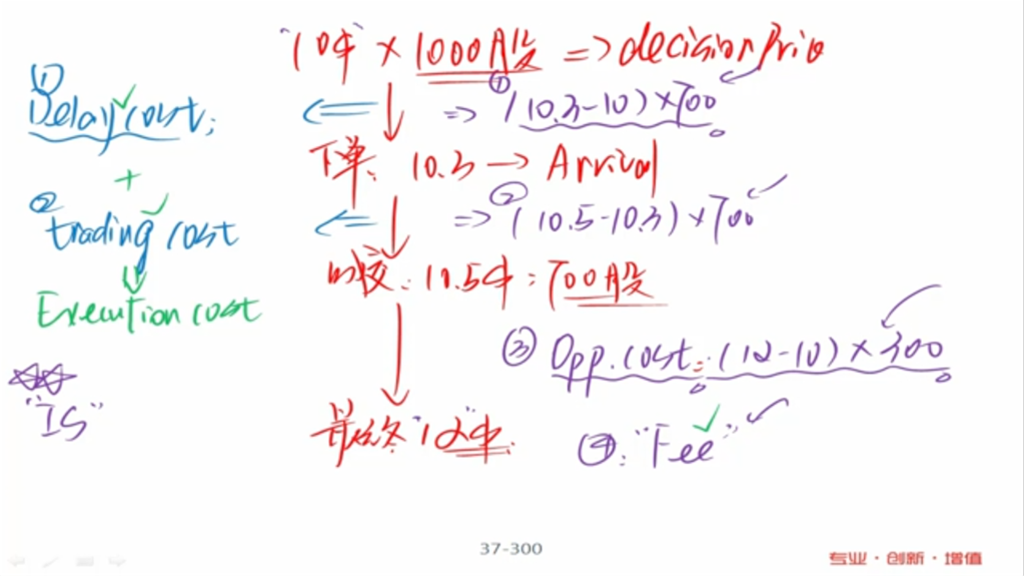 "10元" × 1000股 => decision Price
① Delay cost;
<= ① => (10.3-10)×700
下单: 10.3 → Arrival
+
② trading cost
<= ② => (10.5-10.3)×700
成交: 10.5元: 700股
Execution cost
③ Opp. cost: (12-10)×300
"IS"
最终 "12"元.
④: "Fee"
37-300
专业·创新·增值